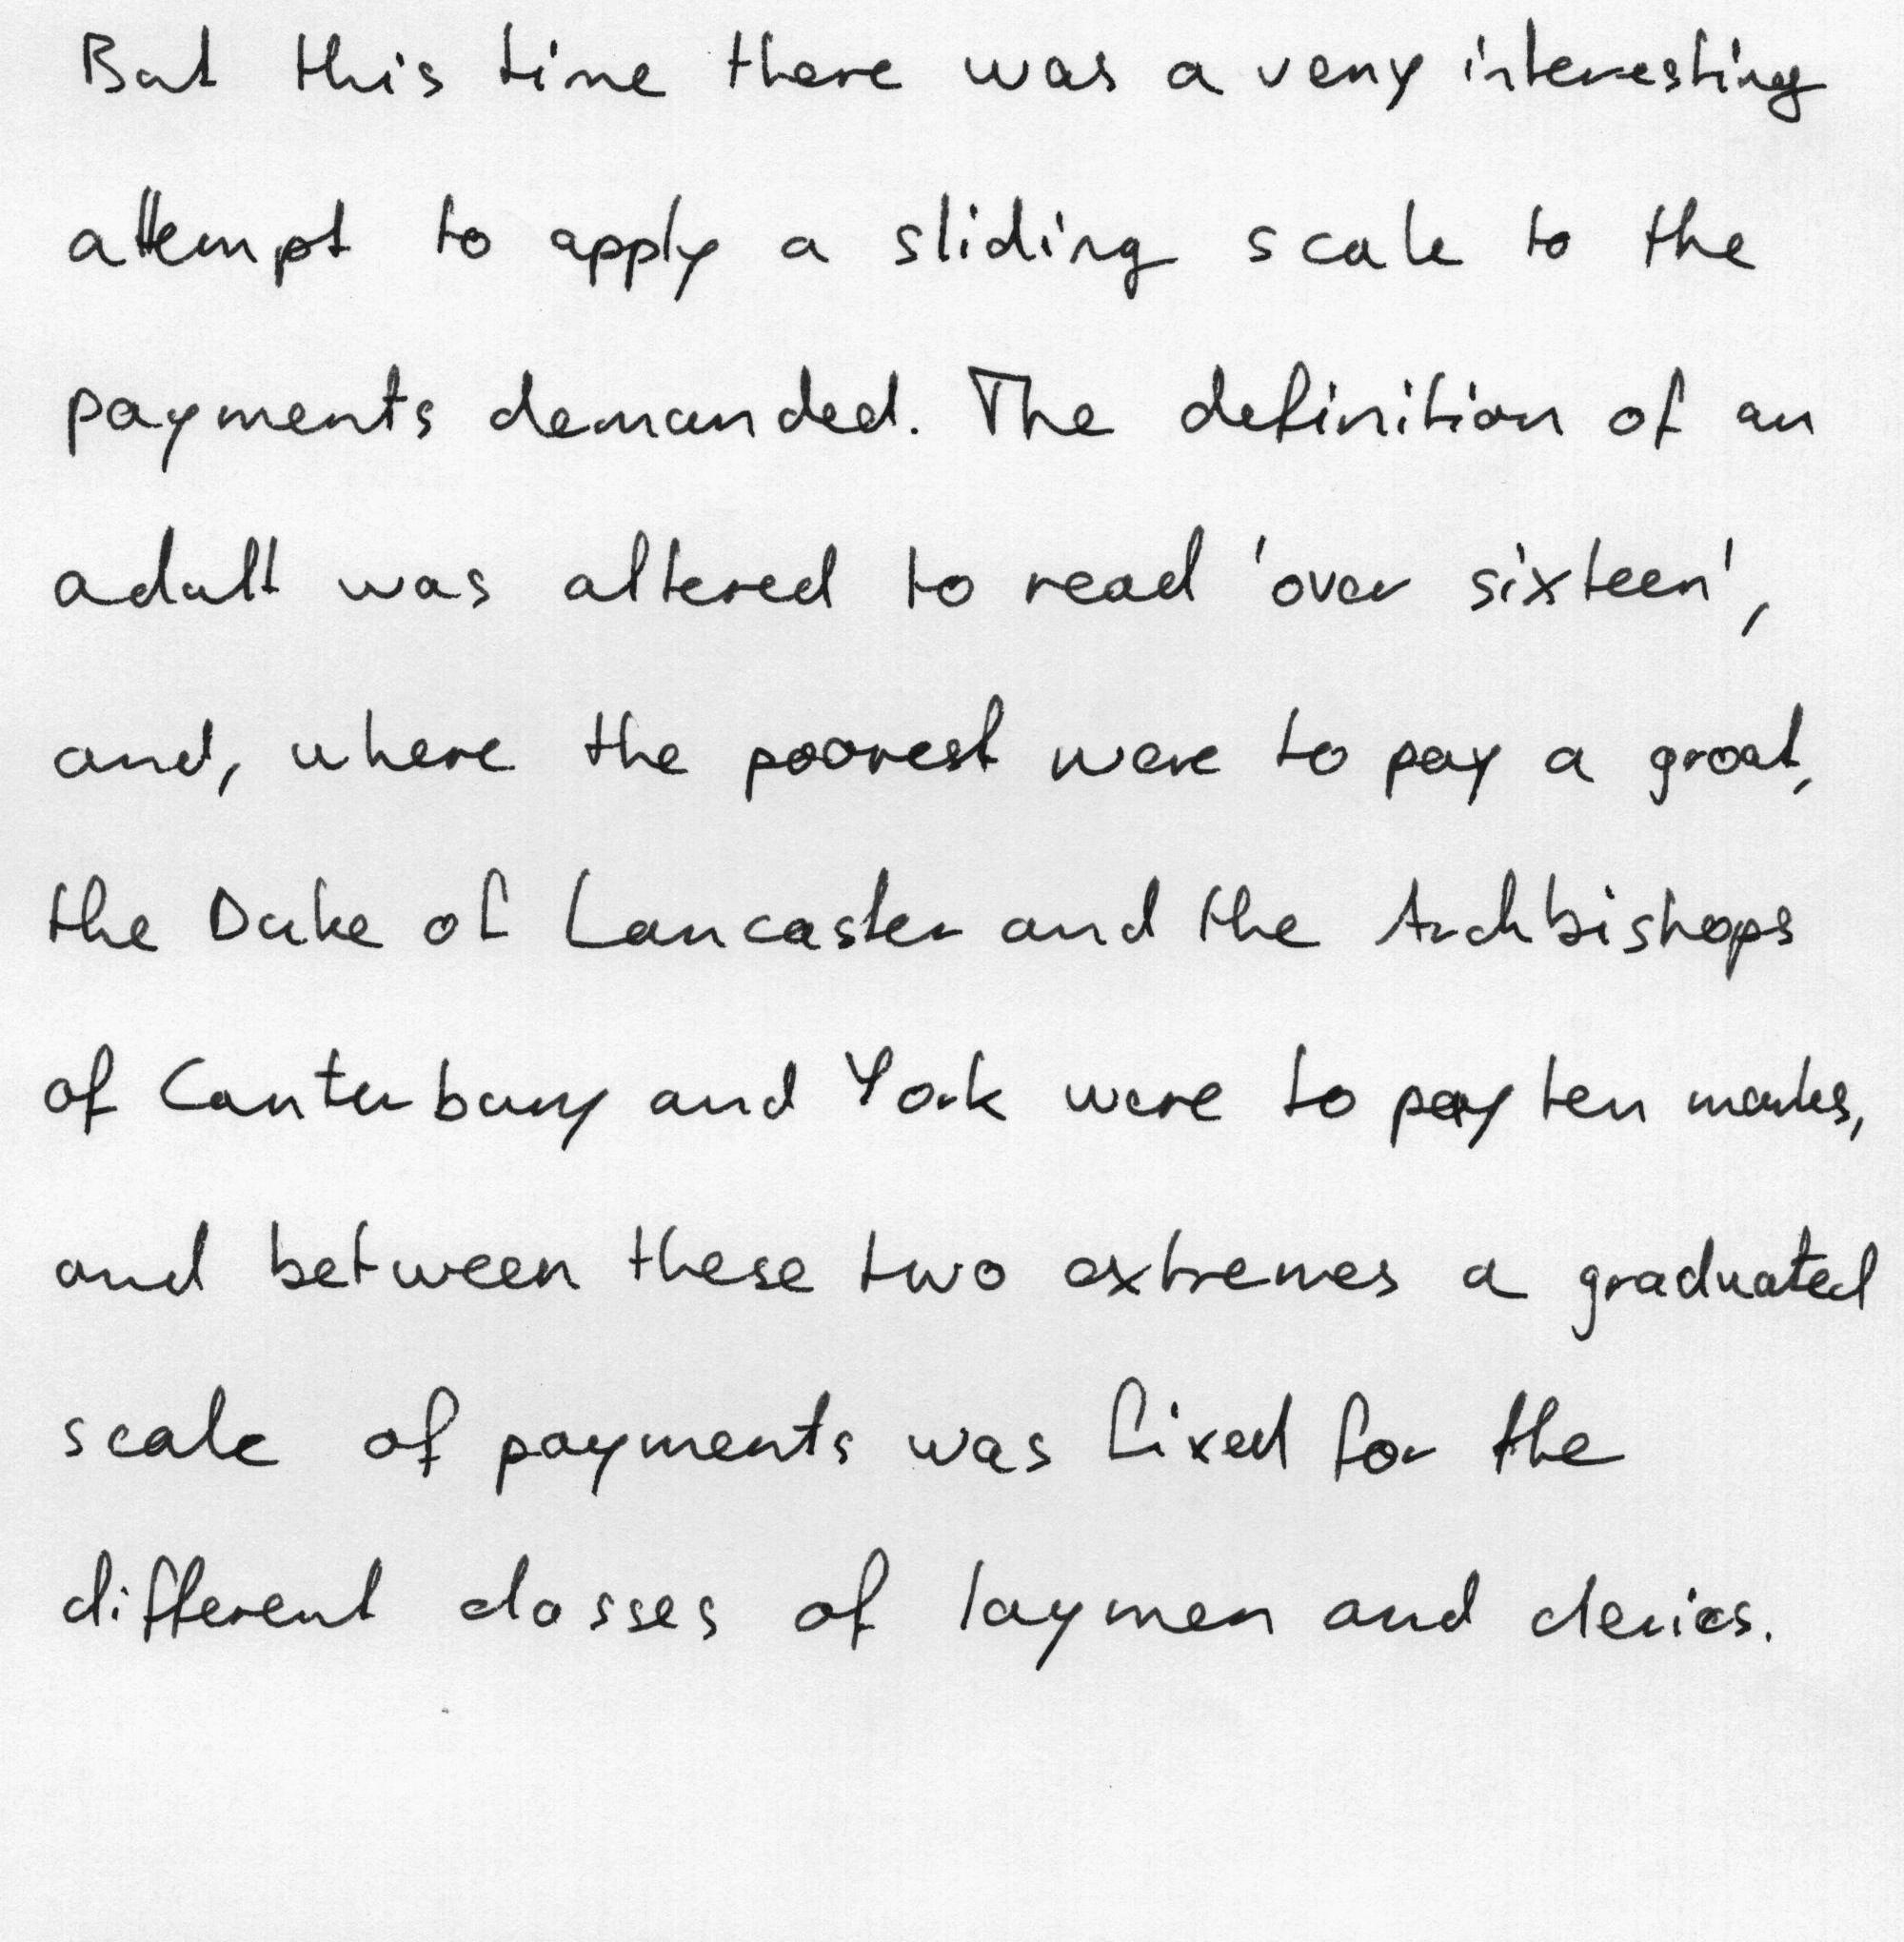 But this time there was a very interesting
attempt to apply a sliding scale to the
payments demanded. The definition of an
adult was altered to read 'over sixteen',
and, where the poorest were to pay a groat,
the Duke of Lancaster and the Archbishops
of Canterbury and York were to pay ten marks,
and between these two extremes a graduated
scale of payments was fixed for the
different classes of laymen and clerics.